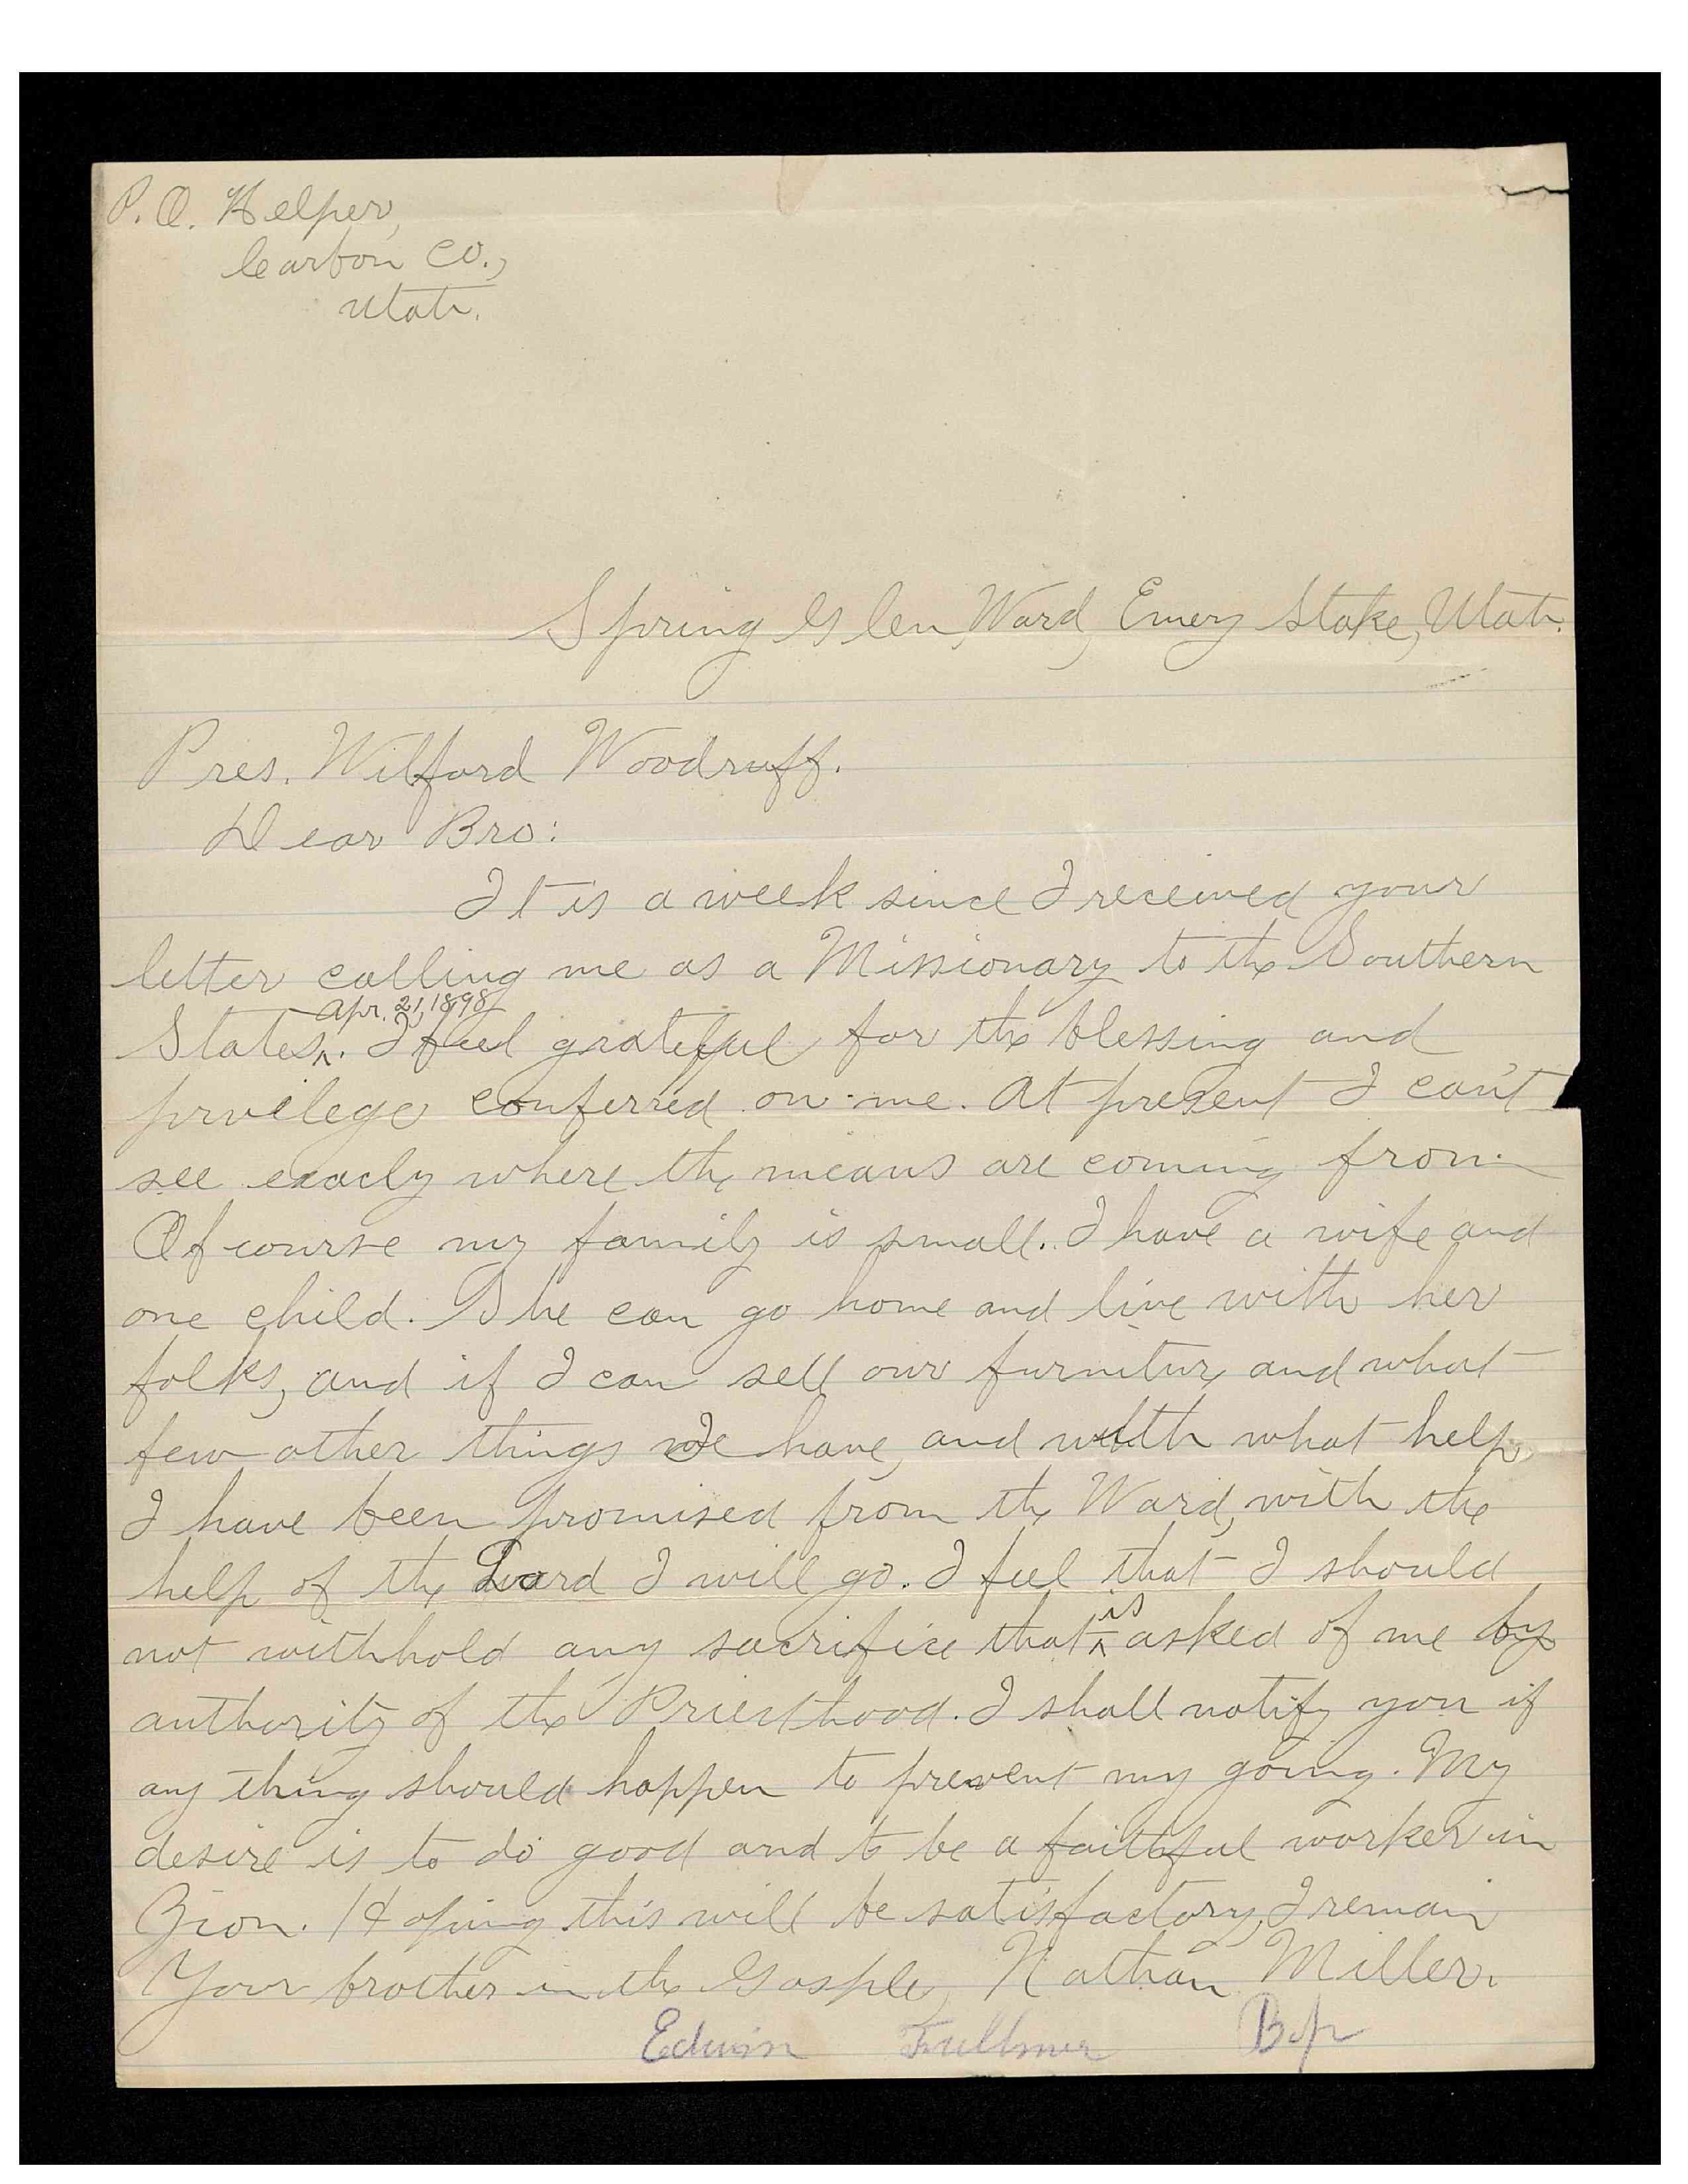 P.O. Helper,
Carbon Co.,
Utah.
Spring Glen, Ward, Emery Stake, Utah.
Pres. Wilford Woodruff.
Dear Bro:
It is a week since I received your
letter calling me as a Missionary to the Southern
Apr. 21, 1898
States. I feel grateful for the blessing and
privilege conferred on me. At present I can't
see exacly where the means are coming from.
Of course my family is small. I have a wife and
one child. She can go home and live with her
folks, and if I can sell our furniture and what
few other things we have, and with what help
I have been promised from the Ward, with the
help of the Lord I will go. I feel that I should
not withhold any sacrifice that is asked of me by
authority of the Priesthood. I shall notify you if
any thing should happen to prevent my going. My
desire is to do good and to be a faithful worker in
Zion. Hoping this will be satisfactory, I remain
Your brother in the Gosple, Nathan Miller.
Edwin Fullmer Bp